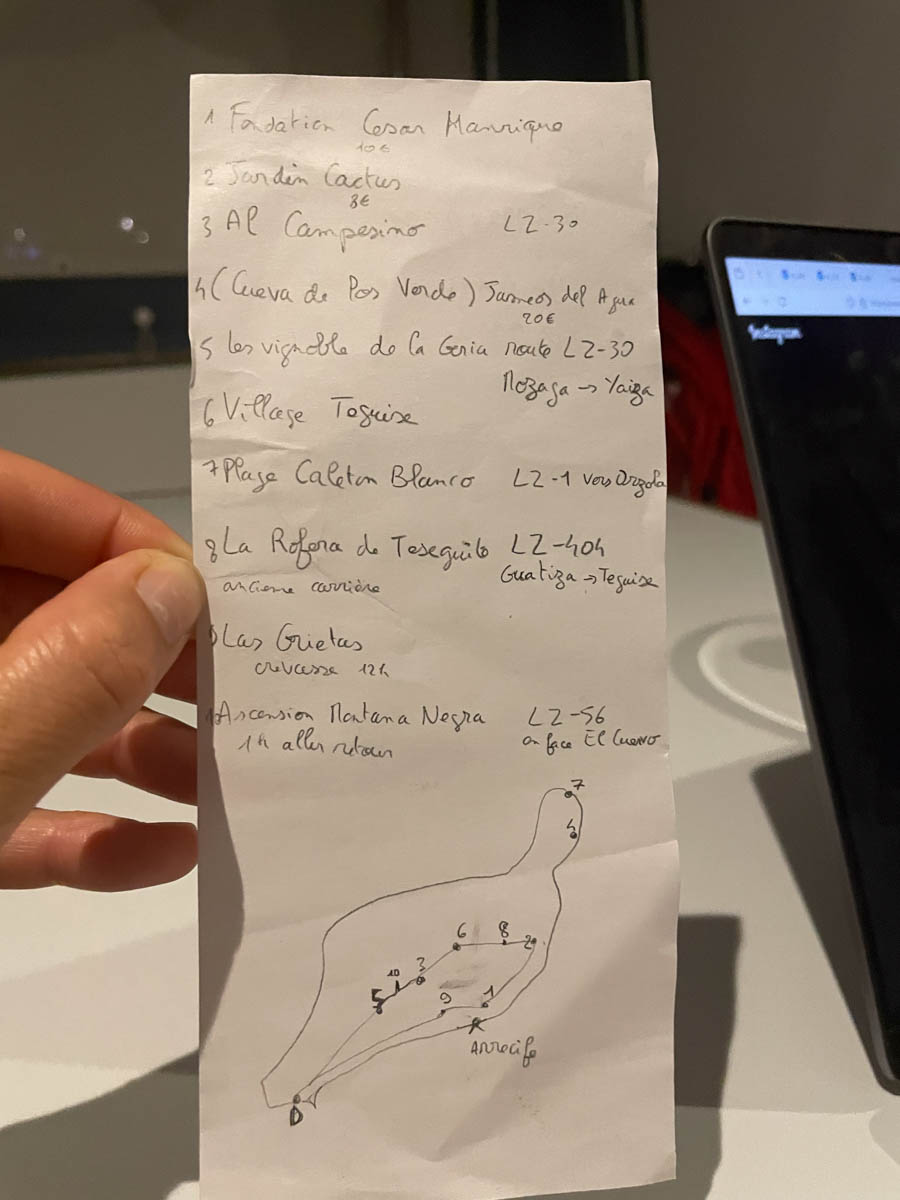 1 Fondation Cesar Manrique
10€
2 Jardin Cactus
8€
3 Al Campesino LZ-30
4 (Cueva de Pos Verde) Jameos del Agua
20€
5 les vignoble de la Geria route LZ-30
Mozaga → Yaiza
6 Village Teguise
7 Plage Caleton Blanco LZ-1 vers Orzola
8 La Rofera de Teseguite LZ-404
Guatiza → Teguise
ancienne carrière
9 Las Grietas
crevasse 12h
10 Ascension Montana Negra LZ-56
1h aller retour en face El Cuervo
7
4
6 8 2
3
10
5
9 1
Arrecife
D